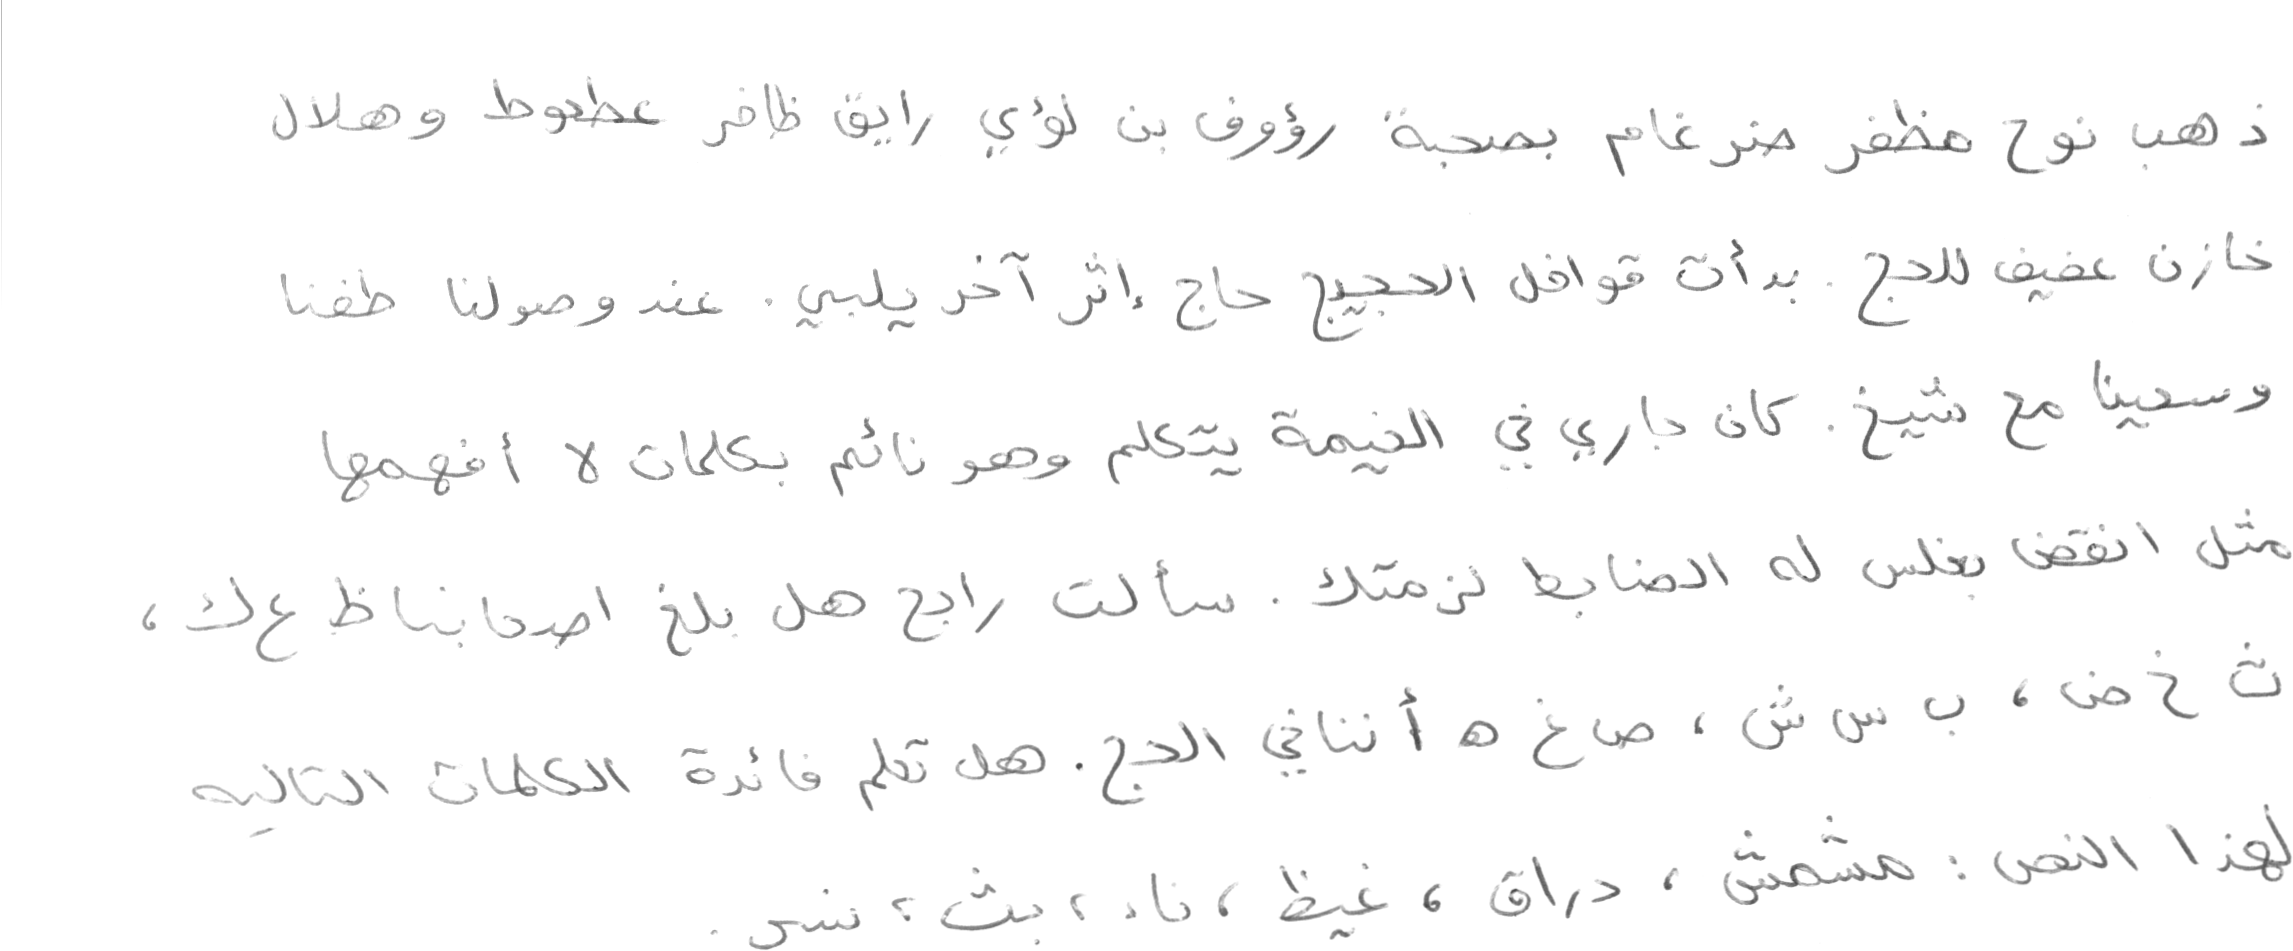 ذهب نوح مظفر ضرغام بصحبة رؤوف بن لؤي رايق ظافر عطعوط وهلال
خازن عفيف للحج . بدأت قوافل الحجيج حاج إثر آخر يلبي . عند وصولنا طفنا
وسعينا مع شيخ . كان جاري في الخيمة يتكلم وهو نائم بكلمات لا أفهمها
مثل انقض بغلس له الضابط لزمتك . سألت رابح هل بلغ اصحابنا ظ ع ك ،
ث خ ض ، ب س ش ، ص غ ه أننا في الحج . هل تعلم فائدة الكلمات التاليه
لهذا النص : مشمش ، دراق ، غيظ ، ناء ، بث ، نس .